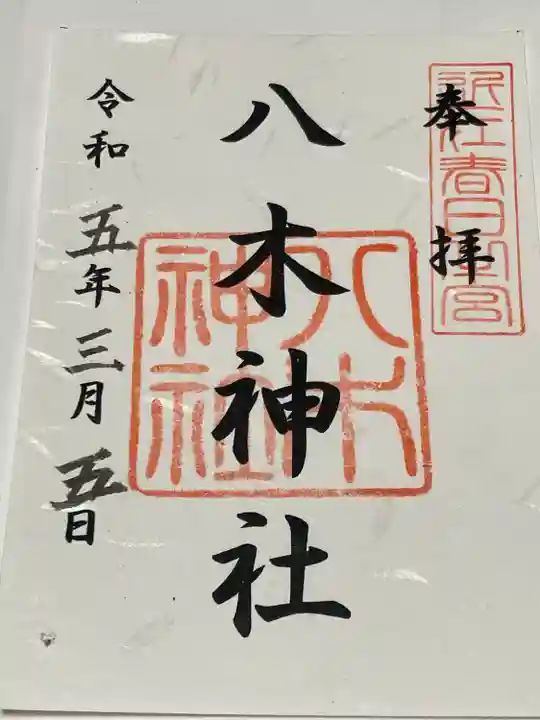 奉拝
近江春日
宮
八木神社
八木
神社
令和五年三月五日